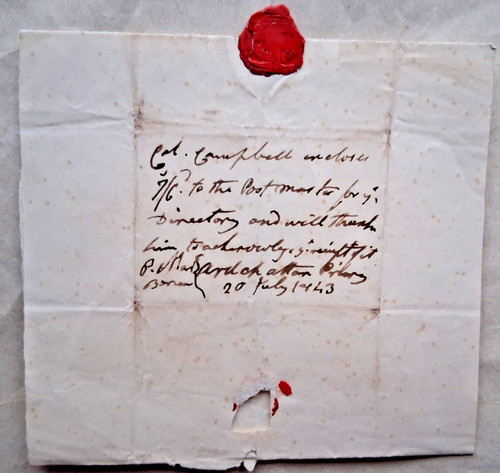 Col. Campbell encloses
7/6d. to the Post master for ye.
Directory and will thank
him to acknowlg. ye. receipt of it
P. Mark Ardchattan Priory
Bonaw 20 July 1843